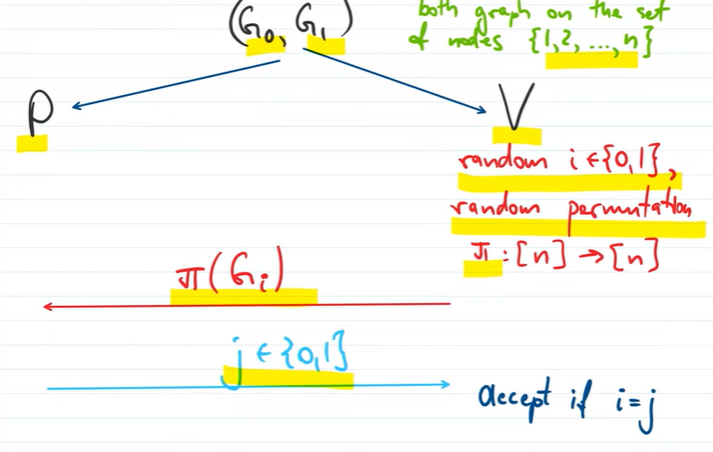 (G₀, G₁)
both graph on the set
of nodes {1,2, ..., n}
P
V
random i ∈ {0,1},
random permutation
π : [n] → [n]
π(Gᵢ)
j ∈ {0,1}
accept if i=j